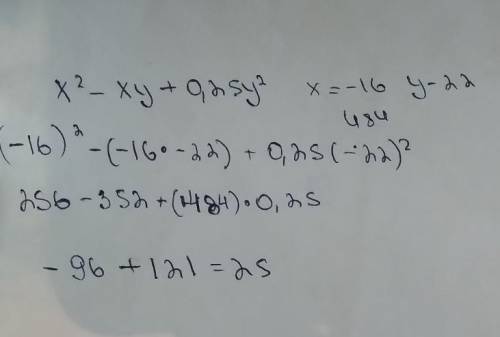 x² - xy + 0,25y² x = -16 y - 22
484
(-16)² - (-16 · -22) + 0,25 (-22)²
256 - 352 + (+484) · 0,25
- 96 + 121 = 25